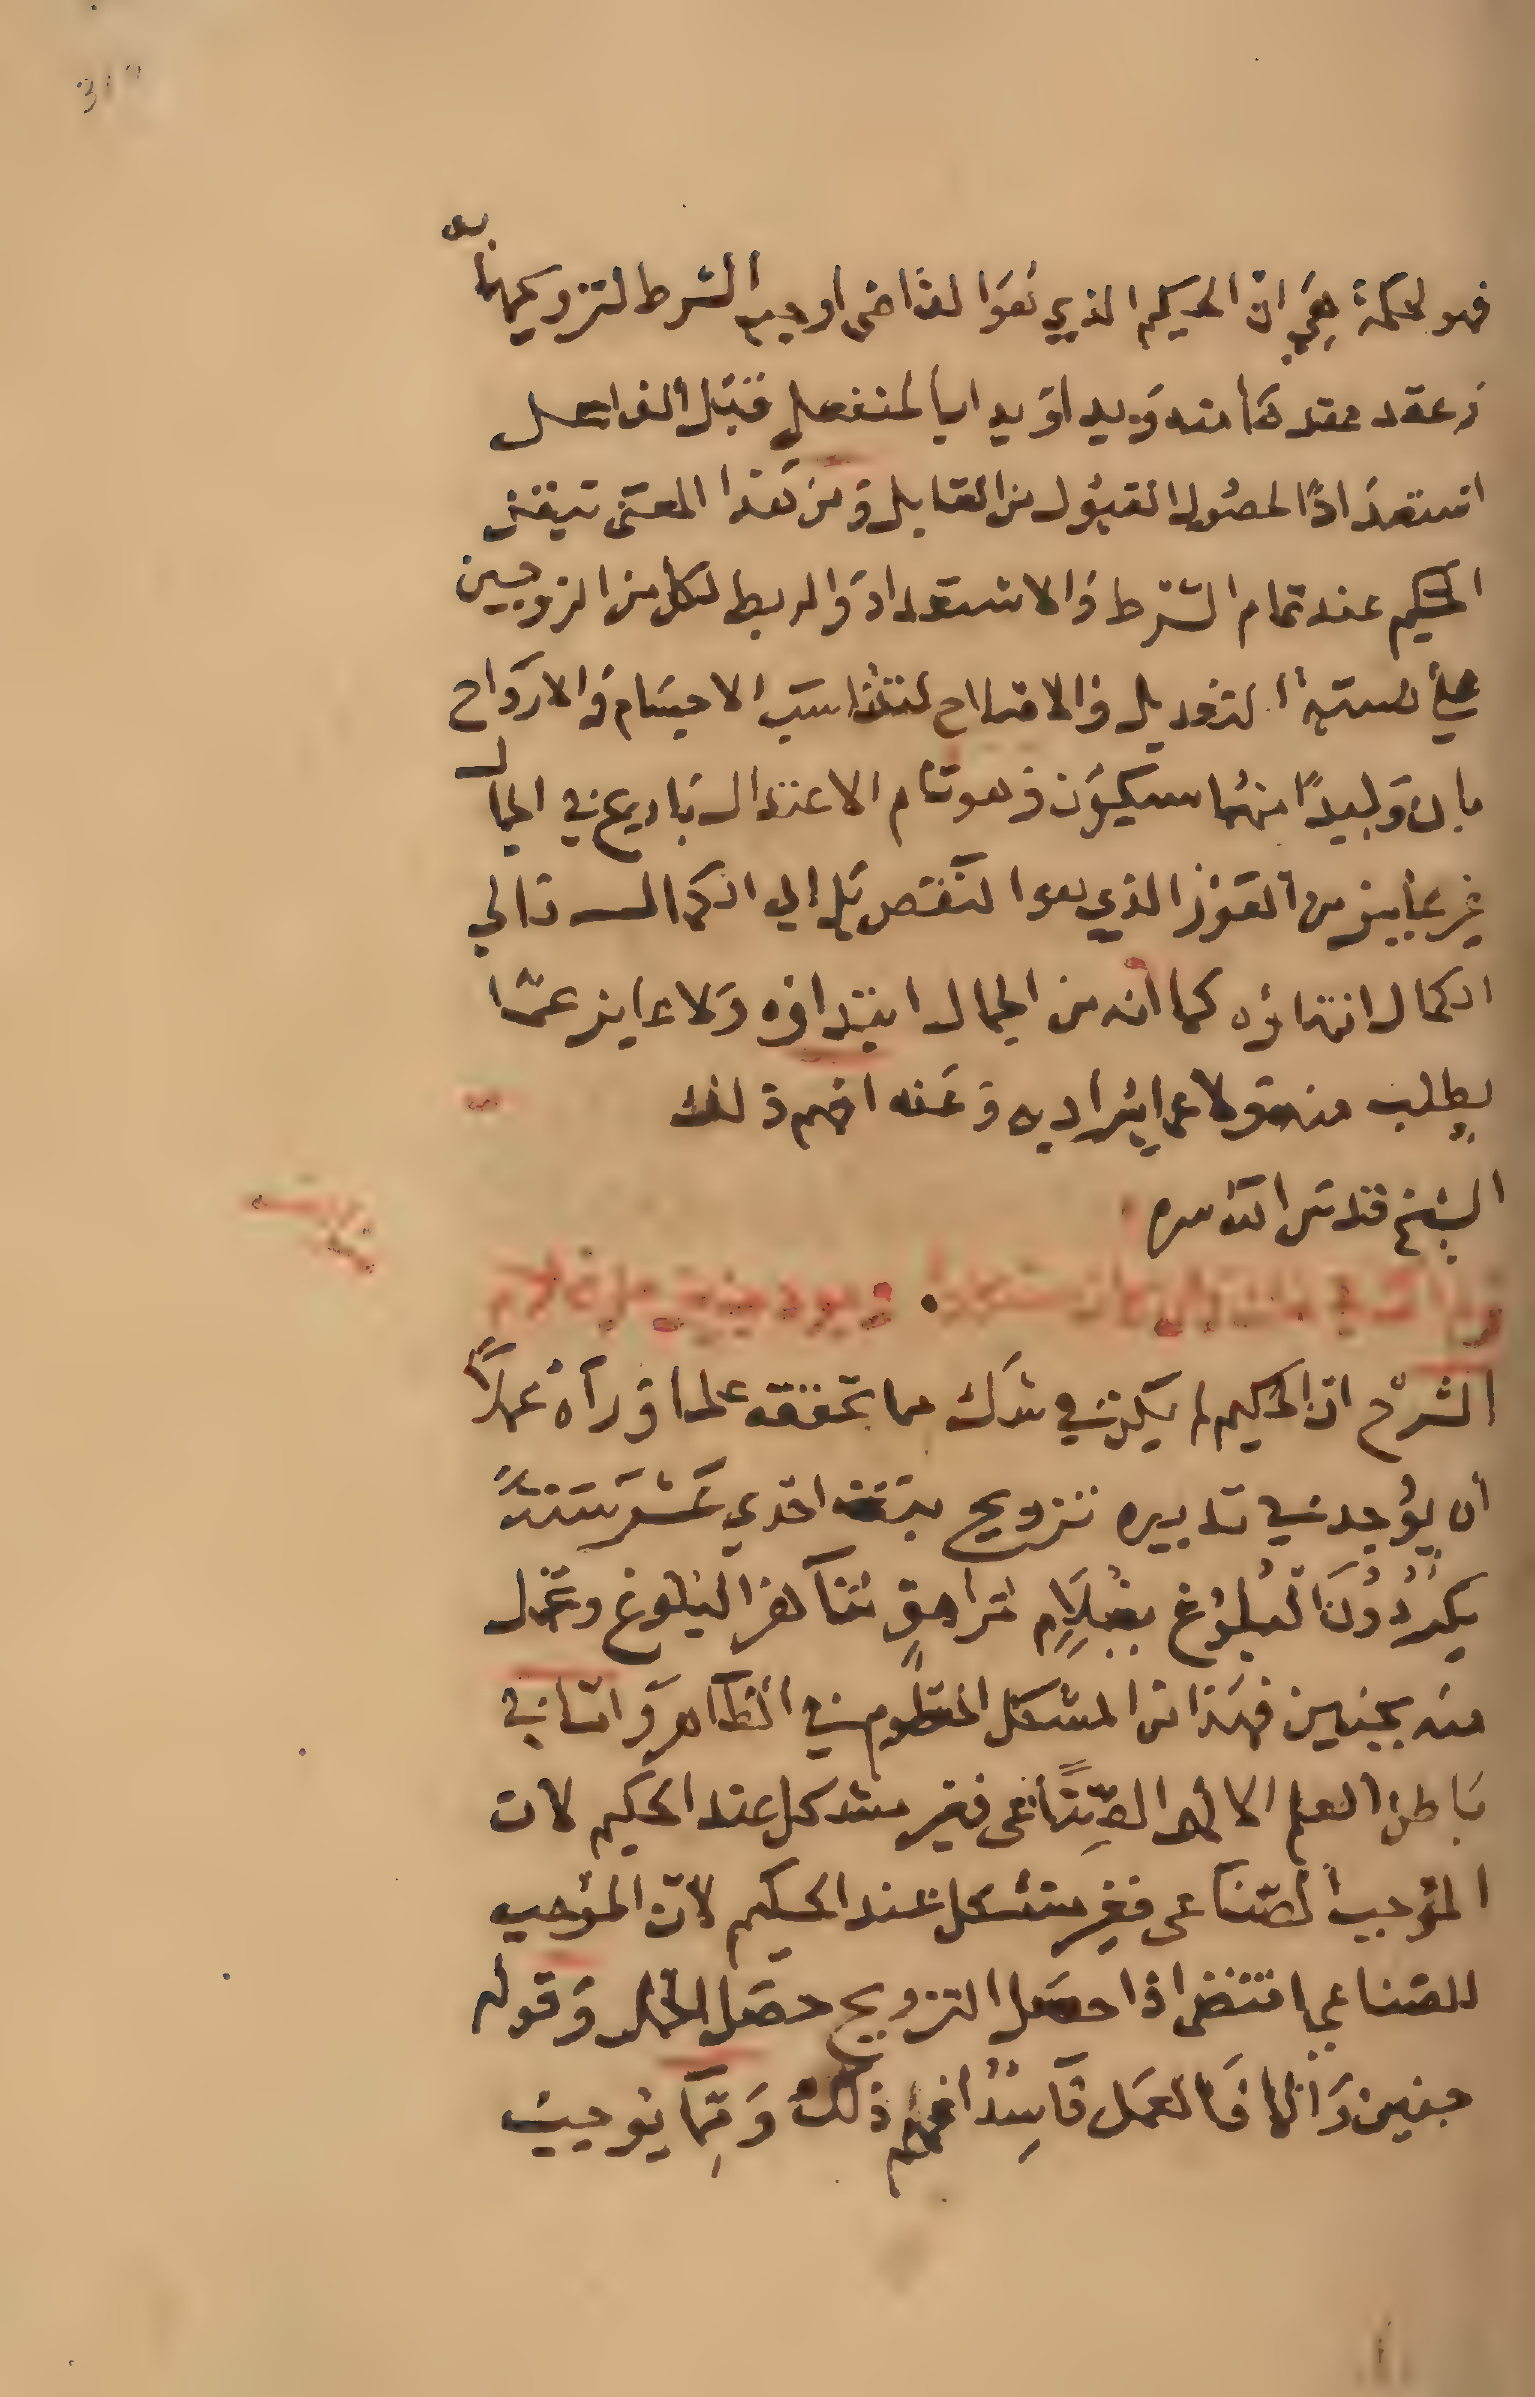 فهو لحكمة هي ان الحكيم الذي هوا القاضي اوجب الشرط لتزويجهما به
وعقد عقدهما منه ويدا ويدا يا لمنفعل قبل الفاعل
استعدادًا لحصول القبول من القابل ومن هذا المعنى تيقن
الحكيم عند تمام الشرط والاستعداد والربط لكل من الزوجين
على نسبة التعديل والاصلاح لتناسب الاجسام والارواح
بان وليدًا منهما سيكون وهو تام الاعتدال بارع في الجمال
غير عايز من العوز الذي هوا النقص بل الى الكمال تالي
الكمال انتهاؤه كما انه من الجمال ابتداؤه ولا عايز عمّا
يطلب منه ولا عما يراد به وعنه افهم ذلك
الشيخ قدس الله سره
الشرح ان الحكيم لم يكن في شك مما تحققه علما ورآه عملاً
ان يوجد في تدبيره تزويج بنت احدي عشر سنةً
بكر دُون البلوغ بغلام مراهق ناهز البلوغ وتحمل
منه بجنين فهذا من المشكل المنظوم في الظاهر واما في
باطن العلم الالهي الصناعي فغير مشكل عند الحكيم لان
الموجب الصناعي فغير مشكل عند الحكيم لان الموجب
الصناعي اقتضى اذا حصل التزويج حصل الحمل وقوله
جنين والا فالعمل فاسد افهم ذلك ومما يوجب